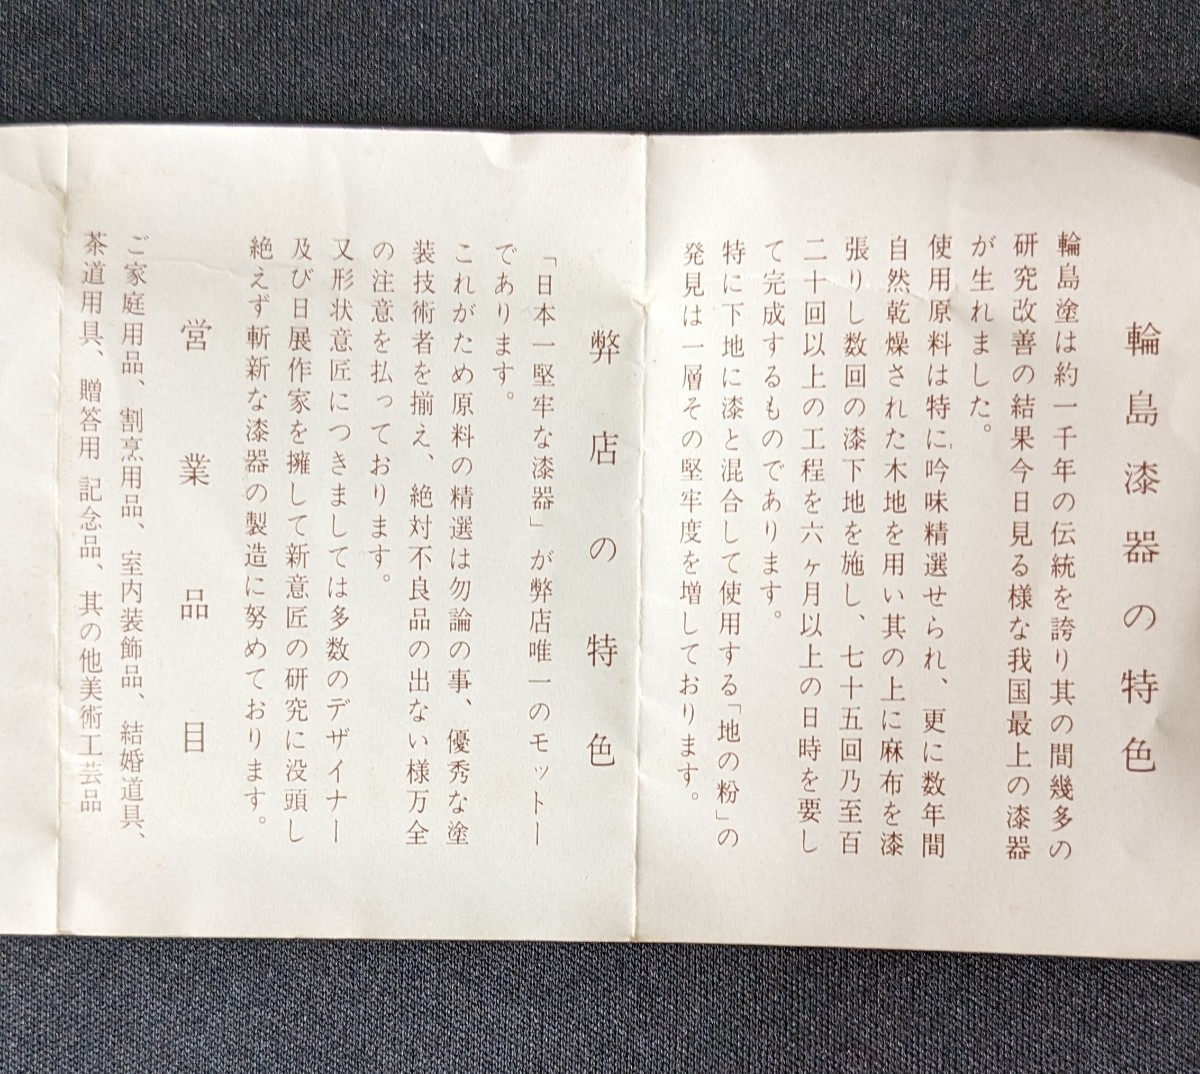 輪島漆器の特色
輪島塗は約一千年の伝統を誇り其の間幾多の
研究改善の結果今日見る様な我国最上の漆器
が生れました。
使用原料は特に吟味精選せられ、更に数年間
自然乾燥された木地を用い其の上に麻布を漆
張りし数回の漆下地を施し、七十五回乃至百
二十回以上の工程を六ヶ月以上の日時を要し
て完成するものであります。
特に下地に漆と混合して使用する「地の粉」の
発見は一層その堅牢度を増しております。
弊店の特色
「日本一堅牢な漆器」が弊店唯一のモットー
であります。
これがため原料の精選は勿論の事、優秀な塗
装技術者を揃え、絶対不良品の出ない様万全
の注意を払っております。
又形状意匠につきましては多数のデザイナー
及び日展作家を擁して新意匠の研究に没頭し
絶えず斬新な漆器の製造に努めております。
営業品目
ご家庭用品、割烹用品、室内装飾品、結婚道具、
茶道用具、贈答用 記念品、其の他美術工芸品